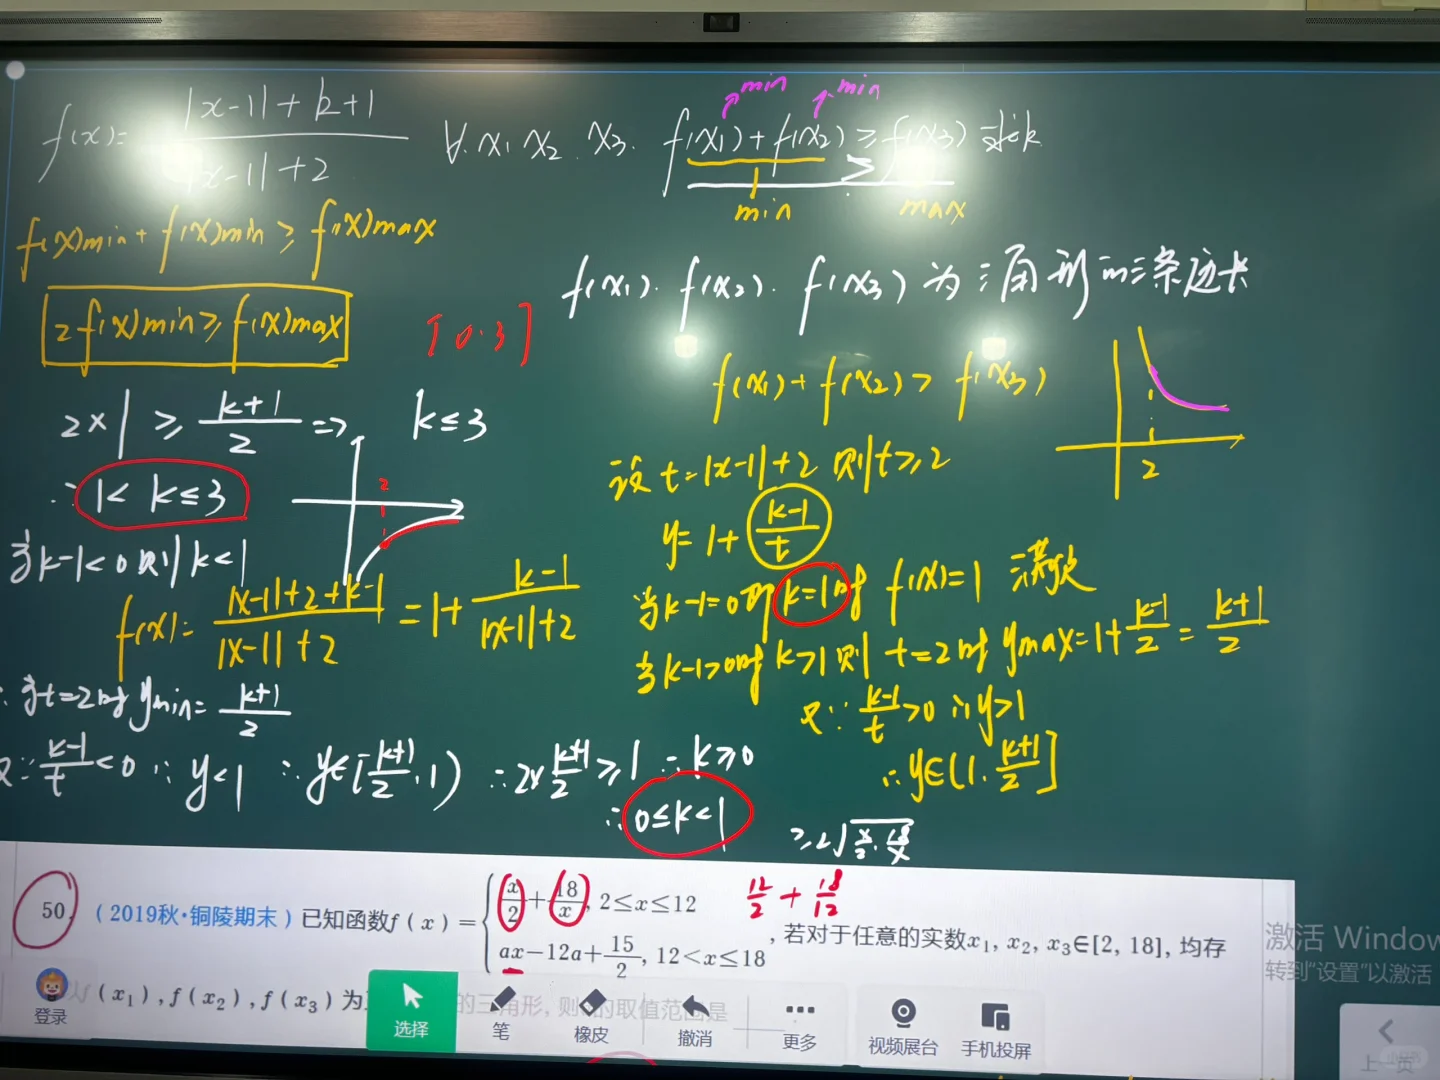 f(x)= |x-1|+k+1 / |x-1|+2 ∀ x₁ x₂ x₃. f(x₁)+f(x₂) ≥ f(x₃) 求k
min min
min max
f(x)min + f(x)min ≥ f(x)max
2f(x)min ≥ f(x)max
[0.3]
f(x₁). f(x₂). f(x₃) 为三角形的三条边长
f(x₁)+f(x₂) > f(x₃)
2×1 ≥ k+1/2 => k≤3
∴ 1< k≤3
2
2
设 t=|x-1|+2 则 t≥2
y= 1+ k-1/t
当k-1<0则k<1
f(x)= |x-1|+2+k-1 / |x-1|+2 = 1+ k-1 / |x-1|+2
当k-1=0即k=1时 f(x)=1 满足
当k-1>0时 k>1 则 t=2时 ymax=1+ k-1/2 = k+1/2
又∵ k-1/t >0 ∴y>1
∴y∈(1. k+1/2]
∴当t=2时 ymin= k+1/2
又∵ k-1/t <0 ∴ y<1 ∴ y∈[k+1/2 . 1) ∴2× k+1/2 ≥1 ∴k≥0
∴ 0≤k<1
≥2√(x/2 · 18/x)
12/2 + 18/12
50. (2019秋·铜陵期末) 已知函数f(x)={ x/2 + 18/x, 2≤x≤12
ax−12a+ 15/2, 12<x≤18 , 若对于任意的实数x₁, x₂, x₃∈[2, 18], 均存
f(x₁), f(x₂), f(x₃)为 的三角形, 则 的取值范围是
登录
选择
笔
橡皮
撤消
更多
视频展台
手机投屏
激活 Window
转到“设置”以激活
上一页